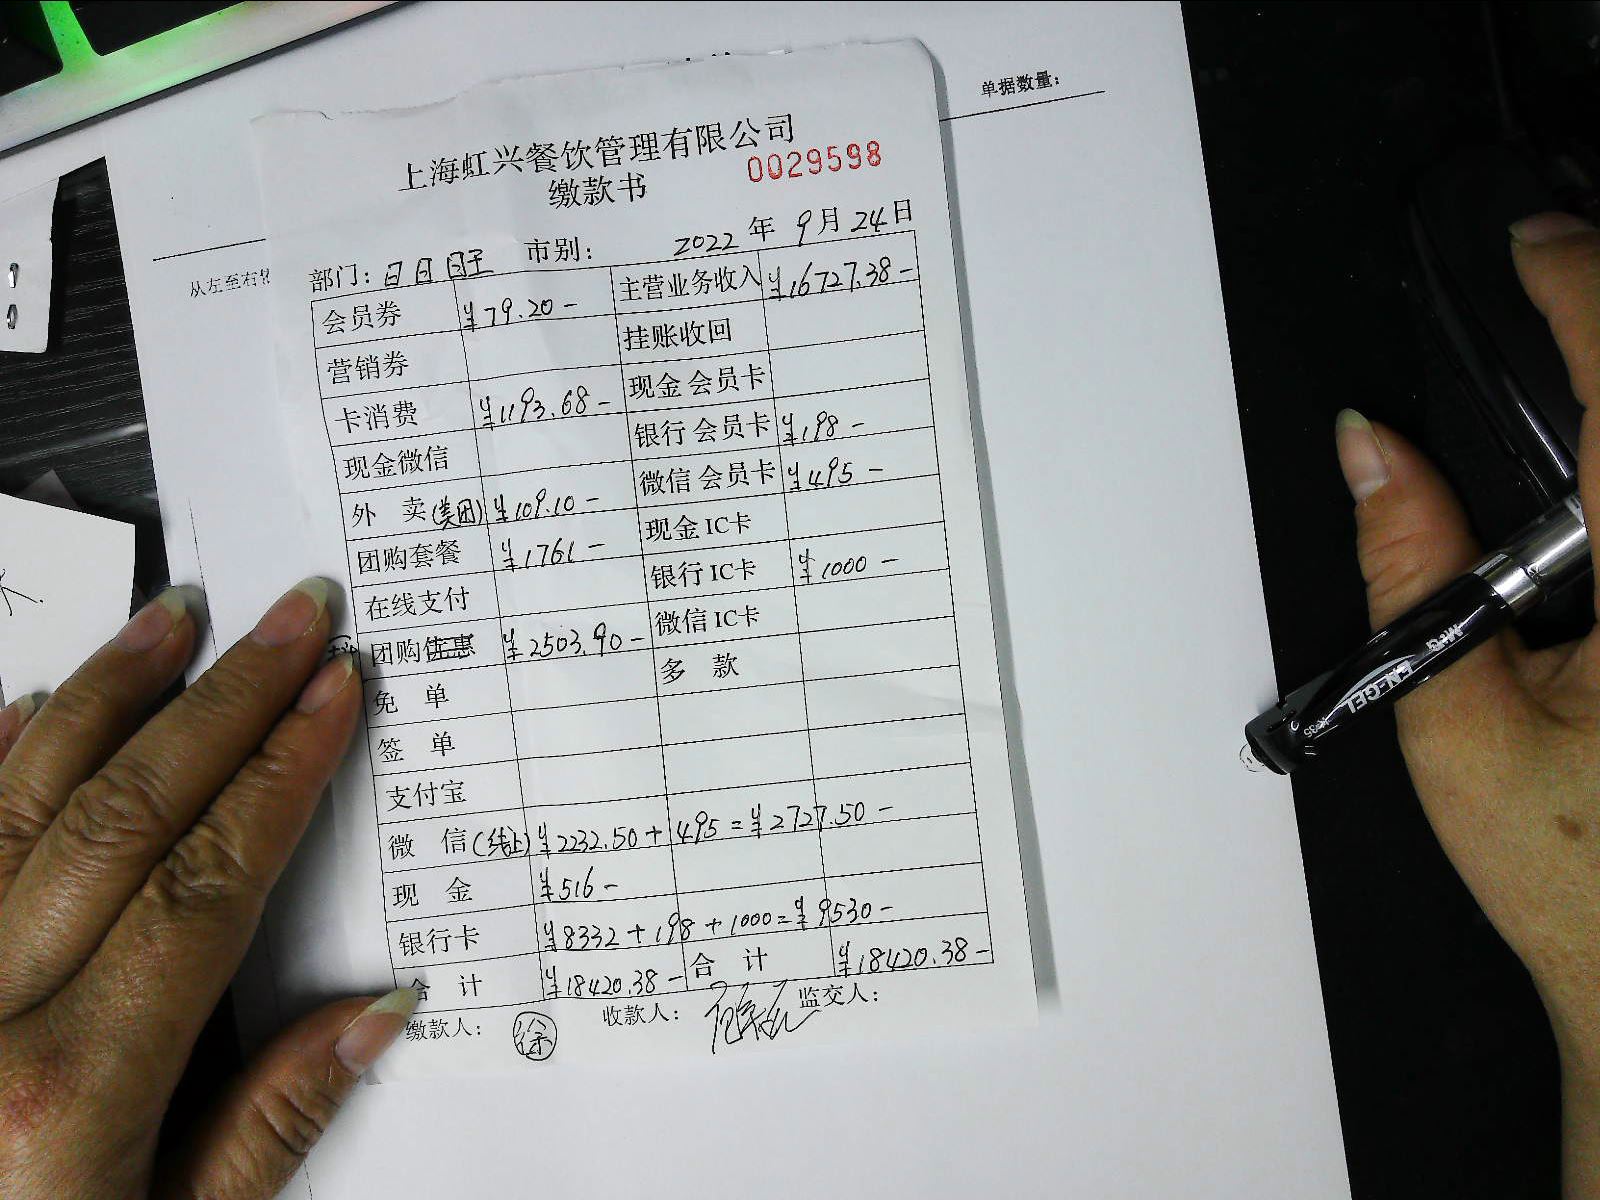 单据数量：
上海虹兴餐饮管理有限公司
0029598
缴款书
部门：日日 市别： 2022 年 9 月 24 日
从左至右
会员券 ¥79.20- 主营业务收入 ¥16727.38-
营销券 挂账收回
卡消费 ¥1193.68- 现金 会员卡
现金微信 银行 会员卡 ¥198-
外 卖(美团) ¥109.10- 微信 会员卡 ¥495-
团购套餐 ¥1761- 现金 IC卡
在线支付 银行 IC卡 ¥1000-
团购优惠 ¥2503.90- 微信 IC卡
免 单 多 款
签 单
支付宝
微 信(线上) ¥2232.50+495=¥2727.50-
现 金 ¥516-
银行卡 ¥8332+198+1000=¥9530-
合 计 ¥18420.38- 合 计 ¥18420.38-
缴款人： 徐 收款人： 监交人：
M&G EN-GEL